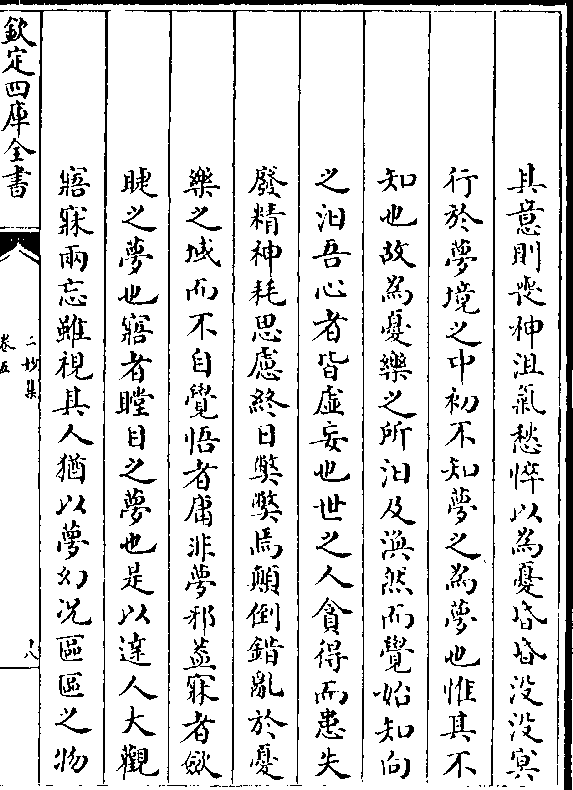 其意則喪神沮氣愁悴以為憂昏昏没没冥
行於夢境之中初不知夢之為夢也惟其不
知也故為憂樂之所汨及渙然而覺始知向
之汨吾心者皆虛妄也世之人貪得而患失
廢精神耗思慮終日㢢㢢焉顛倒錯亂於憂
樂之域而不自覺悟者庸非夢邪葢寐者斂
睫之夢也寤者瞠目之夢也是以達人大觀
寤寐兩忘雖視其人猶以夢幻况區區之物
欽定四庫全書
二妙集
卷五
八